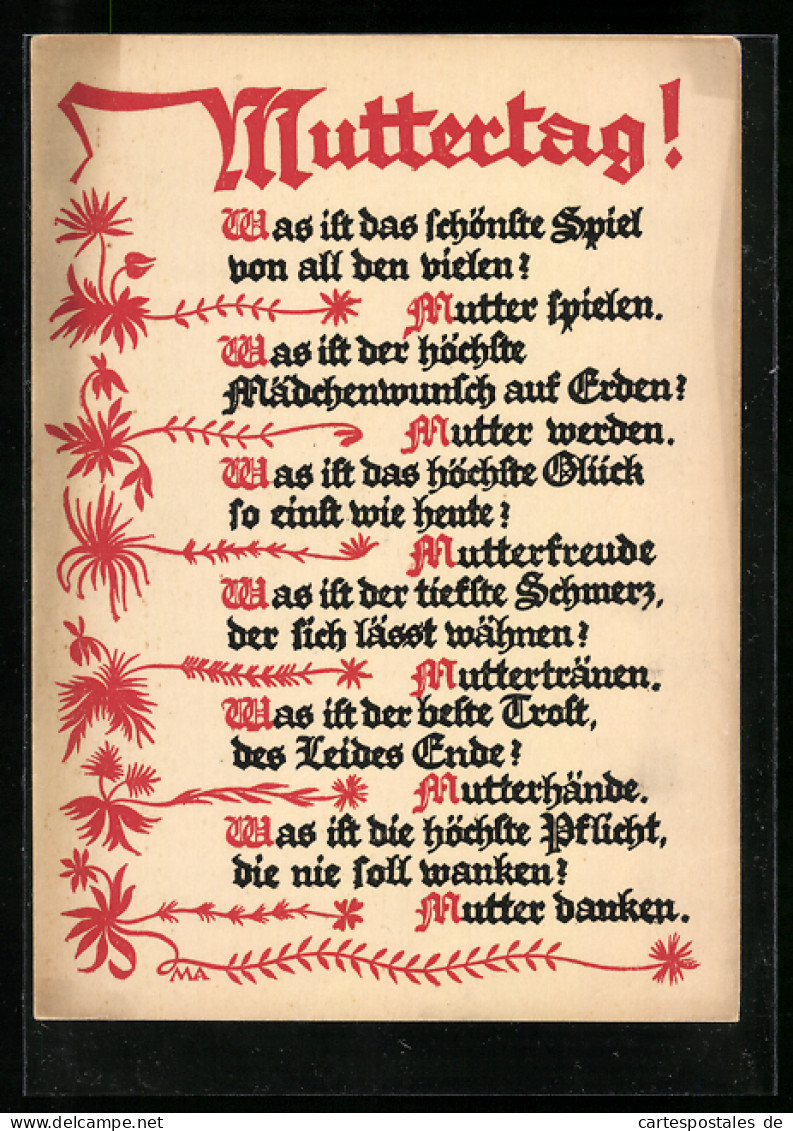 Muttertag!
Was ist das schönste Spiel
von all den vielen?
Mutter spielen.
Was ist der höchste
Mädchenwunsch auf Erden?
Mutter werden.
Was ist das höchste Glück
so einst wie heute?
Mutterfreude
Was ist der tiefste Schmerz,
der sich lässt wähnen?
Muttertränen.
Was ist der beste Trost,
des Leides Ende?
Mutterhände.
Was ist die höchste Pflicht,
die nie soll wanken?
Mutter danken.
MA
www.delcampe.net
cartespostales de